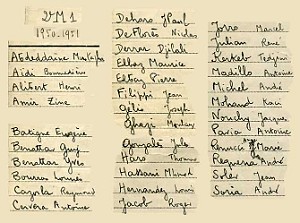 VM1
1950-1951
Abdeddaïne Mustapha
Aïdi Boumediène
Alibert Henri
Amir Zine
Barigue Eugène
Benattia Guy
Benattia Yves
Bourras Louis
Cazorla Raymond
Cervera Antoine
Dehors J Paul
De Florès Nicolas
Derrar Djilali
Elbaz Maurice
Elbaz Pierre
Filippi Jean
Gélis Joseph
Ghazi
Gonzalès Jules
Haro Thomas
Hassaïni Ahmed
Hernandez Louis
Jacob Roger
Jorro Marcel
Julian René
Kerkeb Tedjini
Madillo Antoine
Michel André
Mohand Kaci
Norchy Jacques
Pavia Antoine
Pierre
Requena André
Soler Jean
Soria André